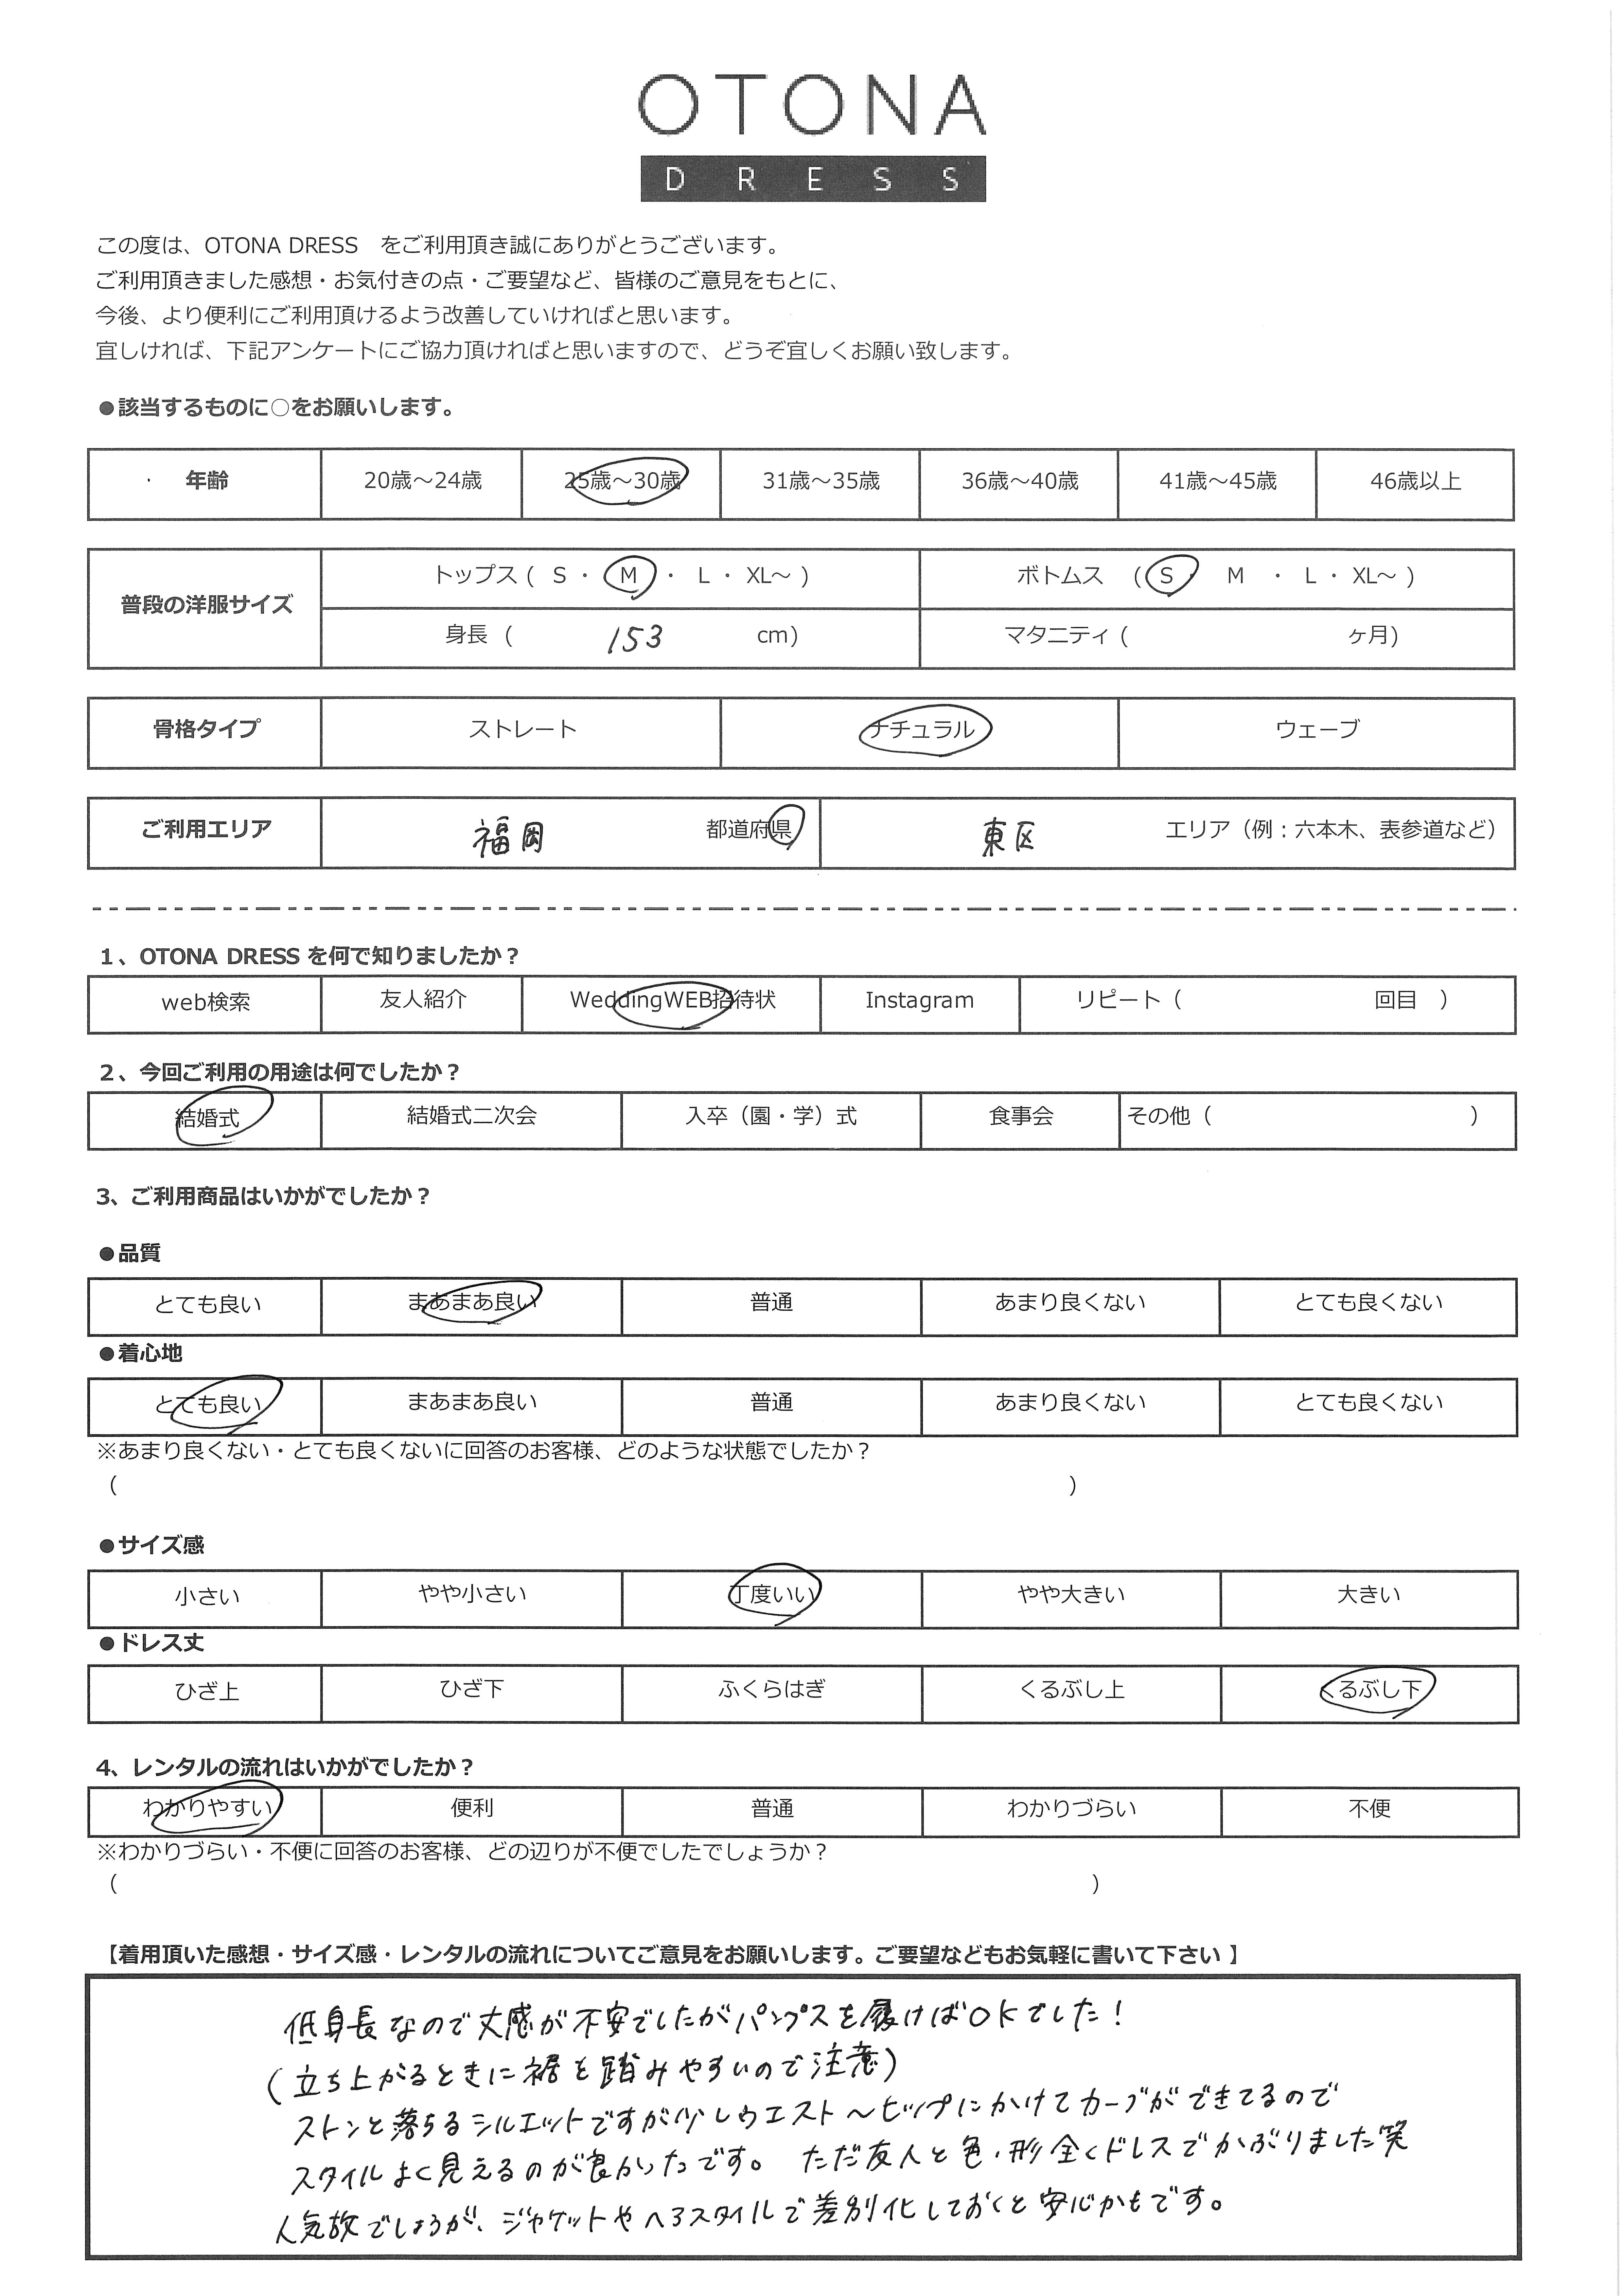 OTONA
DRESS
この度は、OTONA DRESS　をご利用頂き誠にありがとうございます。
ご利用頂きました感想・お気付きの点・ご要望など、皆様のご意見をもとに、
今後、より便利にご利用頂けるよう改善していければと思います。
宜しければ、下記アンケートにご協力頂ければと思いますので、どうぞ宜しくお願い致します。
●該当するものに○をお願いします。
年齢 20歳～24歳 25歳～30歳 31歳～35歳 36歳～40歳 41歳～45歳 46歳以上
普段の洋服サイズ
トップス ( S ・ M ・ L ・ XL～ ) ボトムス ( S ・ M ・ L ・ XL～ )
身長 ( 153 cm) マタニティ ( ヶ月)
骨格タイプ ストレート ナチュラル ウェーブ
ご利用エリア 福岡 都道府県 東区 エリア（例：六本木、表参道など）
1、OTONA DRESS を何で知りましたか？
web検索 友人紹介 WeddingWEB招待状 Instagram リピート（ 回目 ）
2、今回ご利用の用途は何でしたか？
結婚式 結婚式二次会 入卒（園・学）式 食事会 その他（ ）
3、ご利用商品はいかがでしたか？
●品質
とても良い まあまあ良い 普通 あまり良くない とても良くない
●着心地
とても良い まあまあ良い 普通 あまり良くない とても良くない
※あまり良くない・とても良くないに回答のお客様、どのような状態でしたか？
（ ）
●サイズ感
小さい やや小さい 丁度いい やや大きい 大きい
●ドレス丈
ひざ上 ひざ下 ふくらはぎ くるぶし上 くるぶし下
4、レンタルの流れはいかがでしたか？
わかりやすい 便利 普通 わかりづらい 不便
※わかりづらい・不便に回答のお客様、どの辺りが不便でしたでしょうか？
（ ）
【着用頂いた感想・サイズ感・レンタルの流れについてご意見をお願いします。ご要望などもお気軽に書いて下さい 】
低身長なので丈感が不安でしたがパンプスを履けばOKでした！
(立ち上がるときに裾を踏みやすいので注意)
ストンと落ちるシルエットですが少しウエスト～ヒップにかけてカーブができてるので
スタイルよく見えるのが良かったです。ただ友人と色・形全くドレスでかぶりました笑
人気故でしょうが、ジャケットやヘアスタイルで差別化しておくと安心かもです。